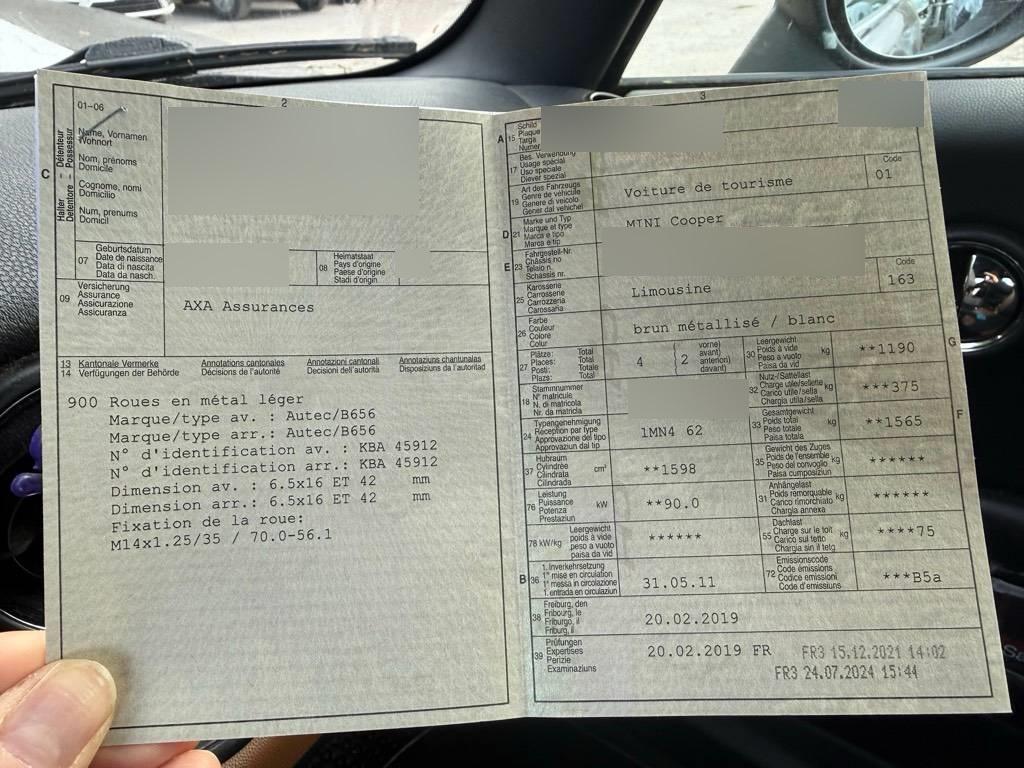 2
01-06
Name, Vornamen
Wohnort
Nom, prénoms
Domicile
Cognome, nomi
Domicilio
Num, prenums
Domicil
C
Halter - Détenteur
Detentore - Possessur
07
Geburtsdatum
Date de naissance
Data di nascita
Data da nasch.
08
Heimatstaat
Pays d'origine
Paese d'origine
Stadi d'origin
09
Versicherung
Assurance
Assicurazione
Assicuranza
AXA Assurances
13 Kantonale Vermerke Annotations cantonales Annotazioni cantonali Annotaziuns chantunalas
14 Verfügungen der Behörde Décisions de l'autorité Decisioni dell'autorità Disposiziuns da l'autoritad
900 Roues en métal léger
Marque/type av. : Autec/B656
Marque/type arr.: Autec/B656
N° d'identification av. : KBA 45912
N° d'identification arr.: KBA 45912
Dimension av. : 6.5x16 ET 42 mm
Dimension arr.: 6.5x16 ET 42 mm
Fixation de la roue:
M14x1.25/35 / 70.0-56.1
3
A 15
Schild
Plaque
Targa
Numer
17
Bes. Verwendung
Usage spécial
Uso speciale
Diever spezial
19
Art des Fahrzeugs
Genre de véhicule
Genere di veicolo
Gener dal vehichel
Voiture de tourisme
Code
01
D 21
Marke und Typ
Marque et type
Marca e tipo
Marca e tip
MINI Cooper
E 23
Fahrgestell-Nr.
Châssis no
Telaio n.
Schassis nr.
25
Karosserie
Carrosserie
Carrozzeria
Carossaria
Limousine
Code
163
26
Farbe
Couleur
Colore
Colur
brun métallisé / blanc
27
Plätze: Total
Places: Total
Posti: Totale
Plazs: Total
4
2
vorne)
avant)
anteriori)
davant)
G 30
Leergewicht
Poids à vide
Peso a vuoto
Paisa da vid
kg
**1190
18
Stammnummer
N° matricule
N. di matricola
Nr. da matricla
32
Nutz-/Sattellast
Charge utile/sellette
Carico utile/sella
Chargia utila/sella
kg
***375
24
Typengenehmigung
Réception par type
Approvazione del tipo
Approvaziun dal tip
1MN4 62
F 33
Gesamtgewicht
Poids total
Peso totale
Paisa totala
kg
**1565
37
Hubraum
Cylindrée
Cilindrata
Cilindrada
cm³
**1598
35
Gewicht des Zuges
Poids de l'ensemble
Peso del convoglio
Paisa cumposiziun
kg
******
76
Leistung
Puissance
Potenza
Prestaziun
kW
**90.0
31
Anhängelast
Poids remorquable
Carico rimorchiato
Chargia annexa
kg
******
78 kW/kg
Leergewicht
poids à vide
peso a vuoto
paisa da vid
******
55
Dachlast
Charge sur le toit
Carico sul tetto
Chargia sin il tetg
kg
****75
B 36
1. Inverkehrsetzung
1re mise en circulation
1a messa in circolazione
1. entrada en circulaziun
31.05.11
72
Emissionscode
Code émissions
Codice emissioni
Code d'emissiuns
***B5a
38
Freiburg, den
Fribourg, le
Friburgo, il
Friburg, il
20.02.2019
39
Prüfungen
Expertises
Perizie
Examinaziuns
20.02.2019 FR FR3 15.12.2021 14:02
FR3 24.07.2024 15:44